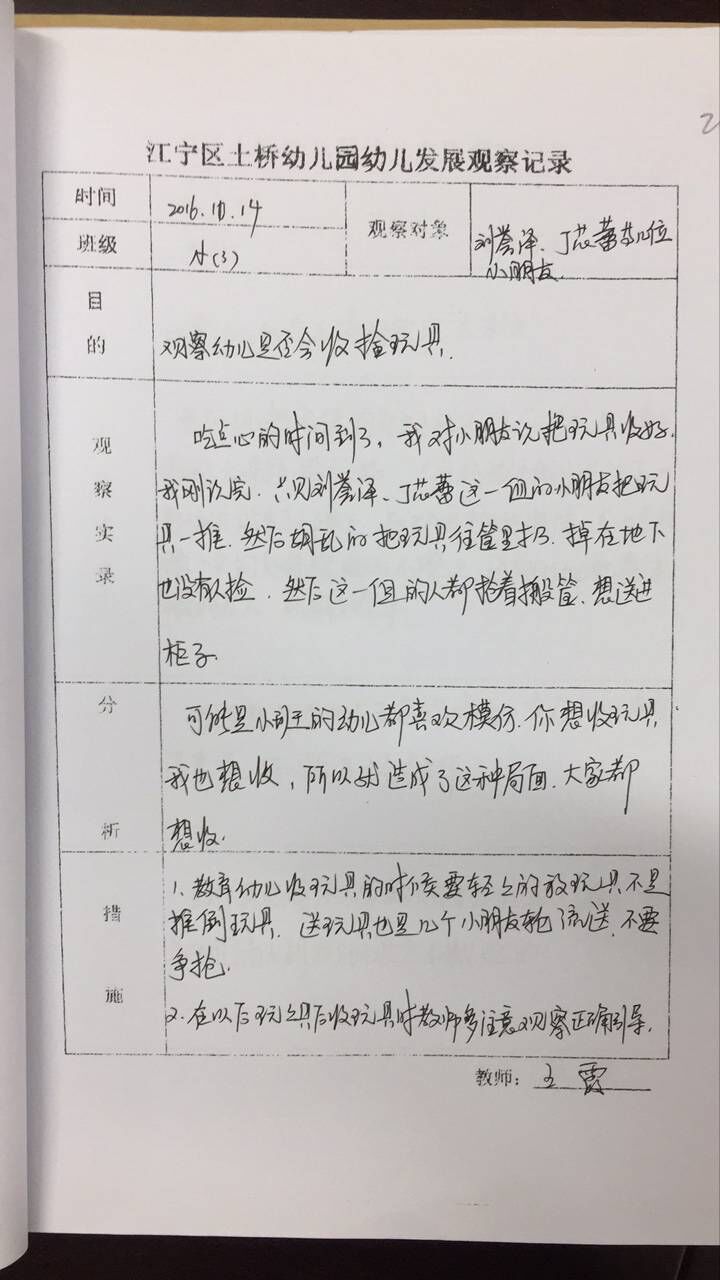 2
江宁区土桥幼儿园幼儿发展观察记录
时间 2016.10.14 观察对象 刘誉泽、丁芯蕾等几位
小朋友.
班级 小(3)
目的 观察幼儿是否会收拾玩具.
观察实录
吃点心的时间到了，我对小朋友说把玩具收好.
我刚说完.只见刘誉泽、丁芯蕾这一组的小朋友把玩
具一推.然后胡乱的把玩具往筐里扔.掉在地下
也没有人捡.然后这一组的人都抢着搬筐.想送进
柜子.
分析
可能是小班的幼儿都喜欢模仿.你想收玩具
我也想收，所以就造成了这种局面.大家都
想收.
措施
1、教育幼儿收玩具的时候要轻轻的放玩具不是
推倒玩具.送玩具也是几个小朋友轮流送.不要
争抢.
2、在以后玩玩具后收玩具时教师多注意观察正确引导.
教师：王霞